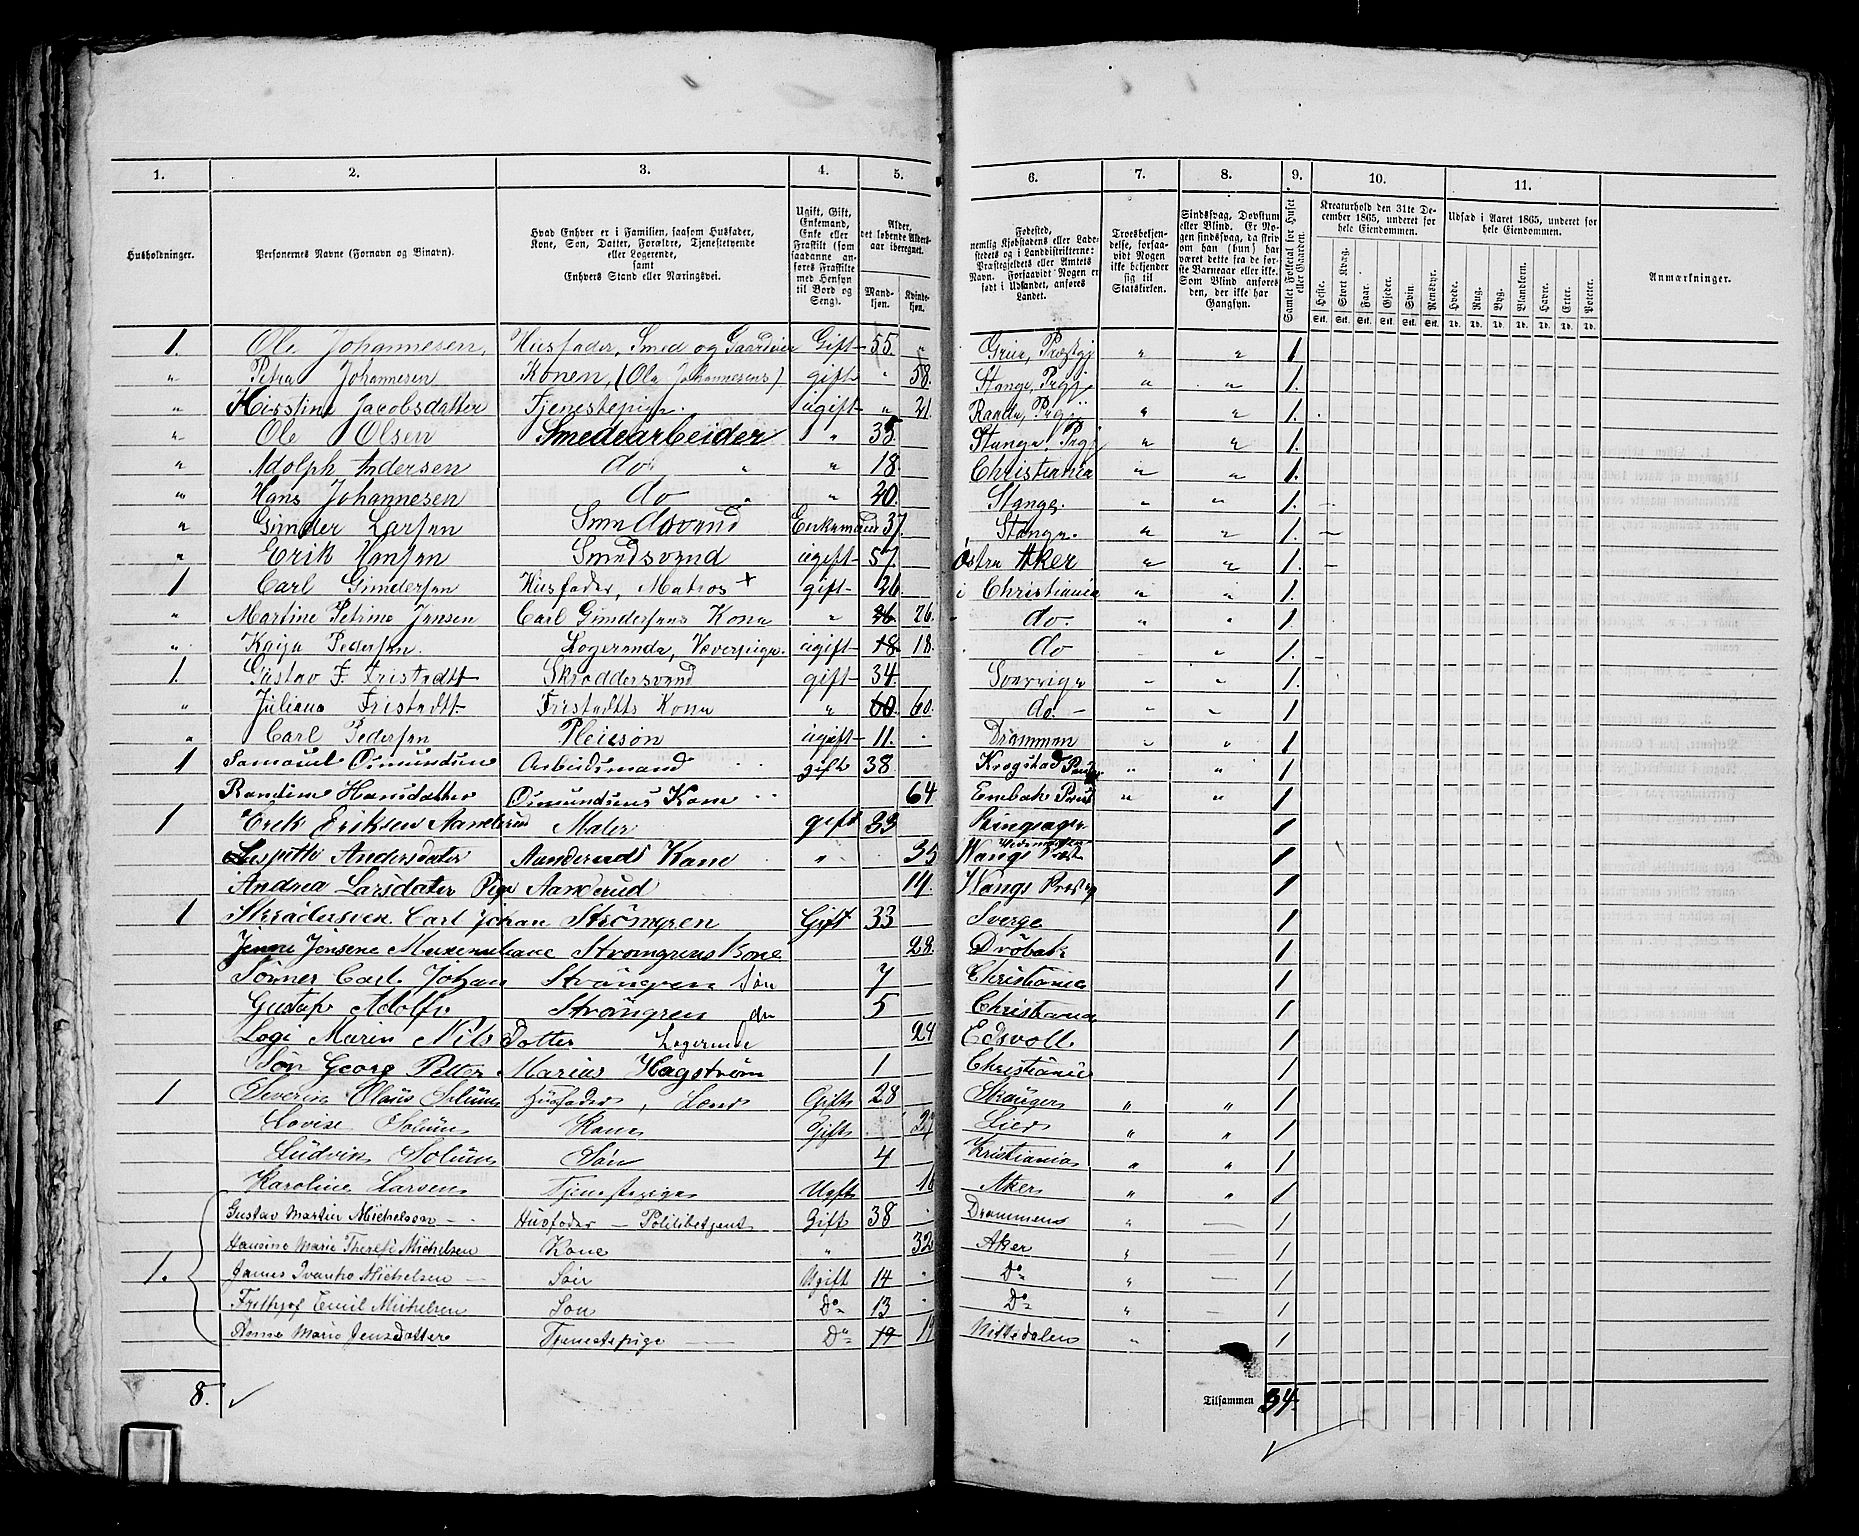 1. 2. 3. 4. 5. 6. 7. 8. 9. 10. 11.
Husholdninger.
Personernes Navne (Fornavn og Binavn).
Hvad Enhver er i Familien, saasom Husfader,
Kone, Søn, Datter, Forældre, Tjenestetyende
eller Logerende,
samt
Enhvers Stand eller Næringsvei.
Ugift, Gift,
Enkemand,
Enke eller
Fraskilt (som
saadanne an-
føres Fraskilte
med Hensyn
til Bord og
Seng).
Alder,
det løbende Alders-
aar iberegnet.
Mand-
kjøn.
Kvinde-
kjøn.
Fødested,
nemlig Kjøbstadens eller Lade-
stedets og i Landdistrikterne:
Præstegjeldets eller Amtets
Navn. Forsaavidt Nogen er
født i Udlandet, anføres
Landet.
Troesbekjen-
delse, forsaa-
vidt Nogen
ikke bekjender
sig til
Statskirken.
Sindssvag, Døvstum
eller Blind. Er No-
gen sindssvag, da skrives
om han (hun) har
været dette fra de før-
ste Barneaar eller ikke.
Som Blind anføres
den, der ikke har
Gangsyn.
Samlet Folketal for Huset
eller Gaarden.
Kreaturhold den 31te De-
cember 1865, underet for
hele Eiendommen.
Heste. Stort Kvæg. Faar. Gjeder. Svin. Rensdyr.
Stk. Stk. Stk. Stk. Stk. Stk.
Udsæd i Aaret 1865, underet for
hele Eiendommen.
Hvede. Rug. Byg. Blandkorn. Havre. Erter. Poteter.
Td. Td. Td. Td. Td. Td. Td.
Anmærkninger.
1. Ole Johannesen, Husfader, Smed og Gaardeier Gift 55. " Præstgj " " 1.
" Petra Johannesen Konen, (Ole Johannesens) gift " 58. Stange, Prgj " " 1.
" Kirstine Jacobsdatter Tjenestepige. ugift " 21. Prgj " " 1.
" Ole Olsen Smedearbeider " 35. Stange Prgj " " 1.
" Adolph Andersen do " " 18. Christiania " " 1.
" Hans Johannesen do " " 20. Stange. " " 1.
" Gunder Larsen Smedsvend Enkemand 37. Stange. " " 1.
" Erik Hansen Smedsvend ugift 57. Østre Aker " " 1.
1 Carl Gundersen Husfader, Matros + gift 26 i Christiania " " 1.
" Martine Petrine Jensen Carl Gundersens Kone " 26 26. do. " " 1.
" Kaija Pedersen. Logerende, Væverpige. ugift 18 18. do " 1.
1. Gustav F. Fristedt Skræddersvend gift 34. Sverrige " " 1.
" Juliane Fristedt Fristedts Kone " 60. 60. do. " " 1.
" Carl Pedersen Pleiesøn ugift 11. Drammen " " 1
1 Samouel Osmundsen Arbeidsmand gift 38 Krogstad " " 1
Randine Hansdatter Osmundsens Kone 64 Prest " " 1
1 Erik Eriksen Aanderud Maler gift 33 Ringsager 1
Lispette Andersdater Aanderuds Kone " 35 Wangs Prest 1
Andrea Larsdater Pige Aanderud 14. Wangs Prestg 1
1 Skrædersven Carl Johan Strömgren Gift 33 Sverge 1
Jensene Strömgrens Kone 28. Dröbak 1
Sönner Carl Johan Strömgren Sön 7 Christiania 1
Gustaf Adolf Strömgren do 5 Christiania 1
Logi Marin Nils Dotter Logerende 24 Edsvoll 1
Sön Georg Petter Marius Hagström 1 Christiania 1
1 Severin Claus Solum Husfader, Gift 28 " " 1
Lovise Solum Kone Gift 27 Lier " " 1
Ludvik Solum Søn 4 Kristiania " " 1
Karoline Larsen Tjenestepige Ugift Aker " " 1
Gustav Martin Michelsen Husfader — Politibetjent Gift 38 Drammen " — 1
Hansine Marie Therese Michelsen Kone " 32 Aker " — 1
1. James Ivanho Michelsen Søn Ugift 14 " Do " — 1
Frithjof Emil Michelsen Søn Do 13 " Do " — 1
Anne Marie Jensdatter Tjenestepige Do 19 Nittedalen " 1
8. ✓
Tilsammen 34.